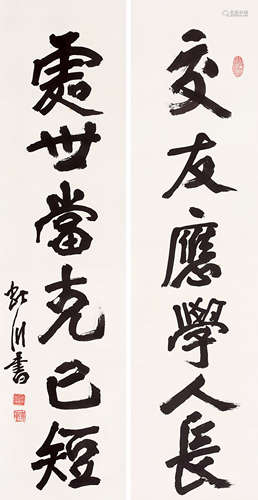 交友應學人長
處世當克己短
虹川書